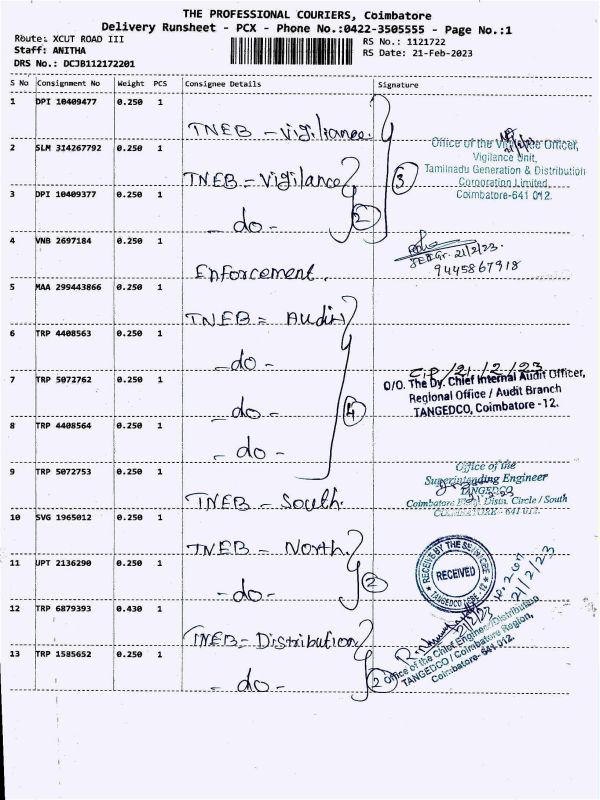 THE PROFESSIONAL COURIERS, Coimbatore
Delivery Runsheet - PCX - Phone No.:0422-3505555 - Page No.:1
Route: XCUT ROAD III
RS No.: 1121722
Staff: ANITHA
RS Date: 21-Feb-2023
DRS No.: DCJB112172201
S No Consignment No Weight PCS Consignee Details Signature
1 DPI 10409477 0.250 1
TNEB - Vigilance.
2 SLM 314267792 0.250 1
Office of the Vigilance Officer,
Vigilance Unit,
Tamilnadu Generation & Distribution
Corporation Limited,
Coimbatore-641 012.
TNEB - Vigilance
3
3 DPI 10409377 0.250 1
- do -
2
4 VNB 2697184 0.250 1
21/2/23.
9445867918
Enforcement.
5 MAA 299443866 0.250 1
TNEB = Audit
6 TRP 4408563 0.250 1
- do -
21/2/23
7 TRP 5072762 0.250 1
O/O. The Dy. Chief Internal Audit Officer,
Regional Office / Audit Branch
TANGEDCO, Coimbatore -12.
- do -
4
8 TRP 4408564 0.250 1
- do -
9 TRP 5072753 0.250 1
Office of the
Superintending Engineer
TANGEDCO
Coimbatore Elecy. Distn. Circle / South
COIMBATORE - 641 012.
TNEB - South.
10 SVG 1965012 0.250 1
TNEB - North.
11 UPT 2136290 0.250 1
RECEIVED
21/2/23
- do -
2
12 TRP 6879393 0.430 1
TNEB - Distribution
21/2/23
Office of the Chief Engineer/Distribution
TANGEDCO / Coimbatore Region,
Coimbatore- 641 012.
13 TRP 1585652 0.250 1
- do -
2